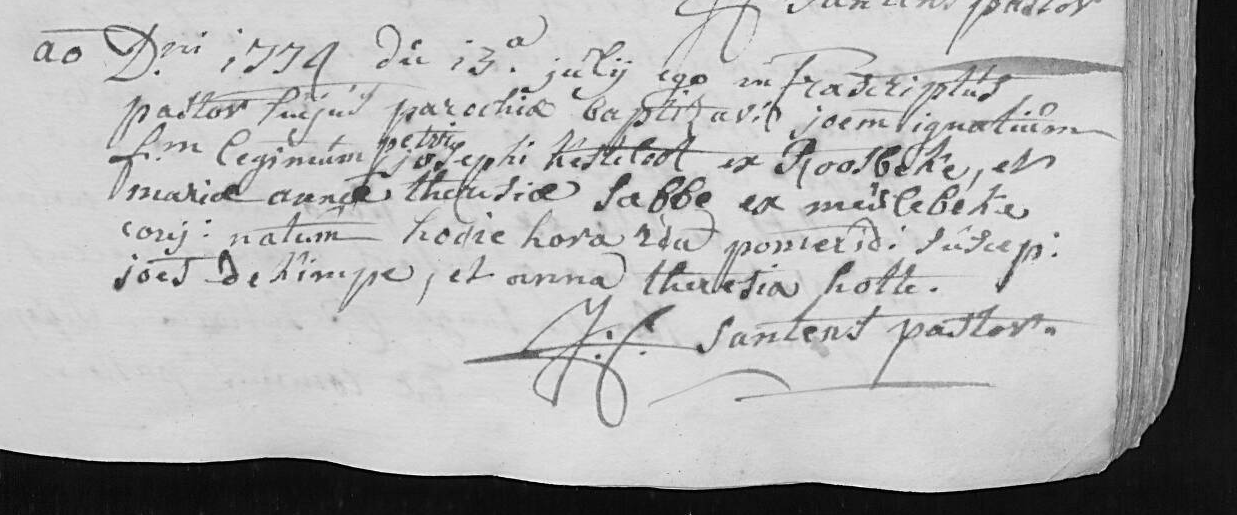 Santens pastor
ao Dni 1774 die 13a julij ego infrascriptus
pastor hujus parochiæ baptizavi joem ignatium
f.m legimum petri
josephi Kesteloot ex Roosbeke, et
mariæ annæ theresiæ Sabbe ex meulebeke
conj: natum hodie hora 2da pomerid: suscep:
joes De Kimpe, et anna theresia hotte.
J: C. Santens pastor.